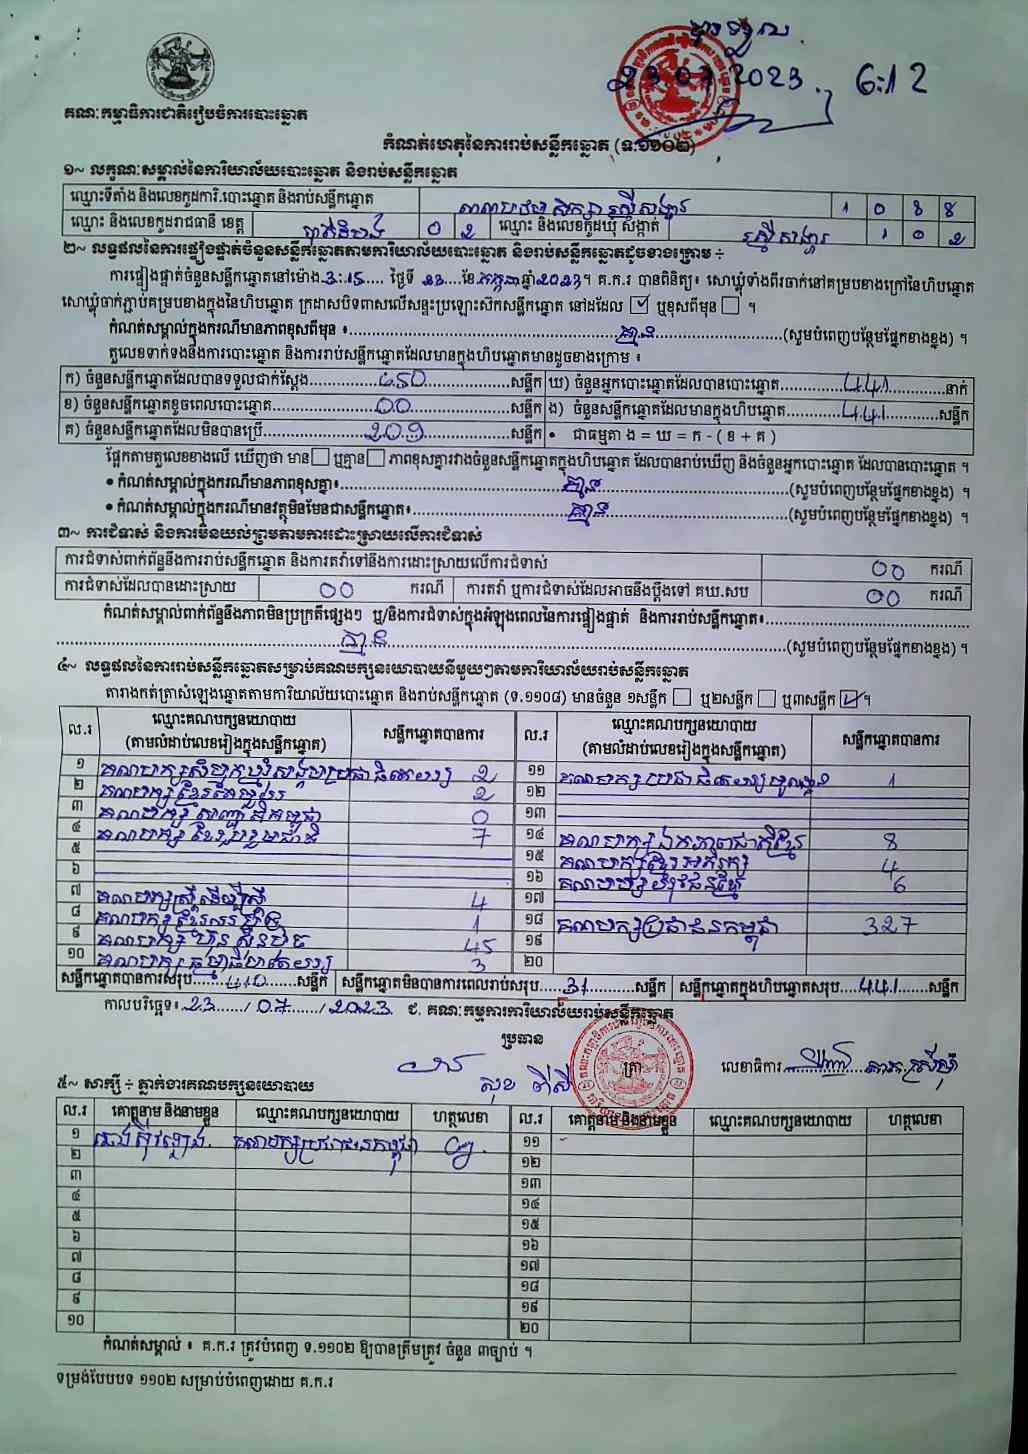 ទទួល
23.07.2023. 6:12
គណៈកម្មាធិការជាតិរៀបចំការបោះឆ្នោត
កំណត់ហេតុនៃការរាប់សន្លឹកឆ្នោត (ទ.១១០២)
១~ លក្ខណៈសម្គាល់នៃការិយាល័យបោះឆ្នោត និងរាប់សន្លឹកឆ្នោត
ឈ្មោះទីតាំង និងលេខកូដការិ.បោះឆ្នោត និងរាប់សន្លឹកឆ្នោត 1 0 8 8
ឈ្មោះ និងលេខកូដរាជធានី ខេត្ត បាត់ដំបង 0 2 ឈ្មោះ និងលេខកូដឃុំ សង្កាត់ 1 0 2
២~ លទ្ធផលនៃការផ្ទៀងផ្ទាត់ចំនួនសន្លឹកឆ្នោតតាមការិយាល័យបោះឆ្នោត និងរាប់សន្លឹកឆ្នោតដូចខាងក្រោម ÷
ការផ្ទៀងផ្ទាត់ចំនួនសន្លឹកឆ្នោតនៅម៉ោង.3:15..... ថ្ងៃទី 23....ខែ.កក្កដាឆ្នាំ2023។ គ.ក.រ បានពិនិត្យ៖ សោឃ្លុំទាំងពីរចាក់នៅគម្របខាងក្រៅនៃហិបឆ្នោត
សោឃ្លុំចាក់ភ្ជាប់គម្របខាងក្នុងនៃហិបឆ្នោត ក្រដាសបិទពាសលើសន្ទះប្រឡោះស៊កសន្លឹកឆ្នោត នៅដដែល ☑ ឬខុសពីមុន ☐ ។
កំណត់សម្គាល់ក្នុងករណីមានភាពខុសពីមុន ៖ គ្មាន (សូមបំពេញបន្ថែមផ្នែកខាងខ្នង) ។
តួលេខទាក់ទងនឹងការបោះឆ្នោត និងការរាប់សន្លឹកឆ្នោតដែលមានក្នុងហិបឆ្នោតមានដូចខាងក្រោម ៖
ក) ចំនួនសន្លឹកឆ្នោតដែលបានទទួលជាក់ស្តែង 650 សន្លឹក ឃ) ចំនួនអ្នកបោះឆ្នោតដែលបានបោះឆ្នោត 441 នាក់
ខ) ចំនួនសន្លឹកឆ្នោតខូចពេលបោះឆ្នោត 00 សន្លឹក ង) ចំនួនសន្លឹកឆ្នោតដែលមានក្នុងហិបឆ្នោត 441 សន្លឹក
គ) ចំនួនសន្លឹកឆ្នោតដែលមិនបានប្រើ 209 សន្លឹក • ជាធម្មតា ង = ឃ = ក - ( ខ + គ )
ផ្អែកតាមតួលេខខាងលើ ឃើញថា មាន☐ ឬគ្មាន☐ ភាពខុសគ្នារវាងចំនួនសន្លឹកឆ្នោតក្នុងហិបឆ្នោត ដែលបានរាប់ឃើញ និងចំនួនអ្នកបោះឆ្នោត ដែលបានបោះឆ្នោត ។
• កំណត់សម្គាល់ក្នុងករណីមានភាពខុសគ្នា៖ គ្មាន (សូមបំពេញបន្ថែមផ្នែកខាងខ្នង) ។
• កំណត់សម្គាល់ក្នុងករណីមានវត្ថុមិនមែនជាសន្លឹកឆ្នោត៖ គ្មាន (សូមបំពេញបន្ថែមផ្នែកខាងខ្នង) ។
៣~ ការជំទាស់ និងការមិនយល់ព្រមតាមការដោះស្រាយលើការជំទាស់
ការជំទាស់ពាក់ព័ន្ធនឹងការរាប់សន្លឹកឆ្នោត និងការតវ៉ាទៅនឹងការដោះស្រាយលើការជំទាស់ 00 ករណី
ការជំទាស់ដែលបានដោះស្រាយ 00 ករណី ការតវ៉ា ឬការជំទាស់ដែលអាចនឹងប្តឹងទៅ គឃ.សប 00 ករណី
កំណត់សម្គាល់ពាក់ព័ន្ធនឹងភាពមិនប្រក្រតីផ្សេងៗ ឬ/និងការជំទាស់ក្នុងអំឡុងពេលនៃការផ្ទៀងផ្ទាត់ និងការរាប់សន្លឹកឆ្នោត៖
គ្មាន (សូមបំពេញបន្ថែមផ្នែកខាងខ្នង) ។
៤~ លទ្ធផលនៃការរាប់សន្លឹកឆ្នោតសម្រាប់គណបក្សនយោបាយនីមួយៗតាមការិយាល័យរាប់សន្លឹកឆ្នោត
តារាងកត់ត្រាសំឡេងឆ្នោតតាមការិយាល័យបោះឆ្នោត និងរាប់សន្លឹកឆ្នោត (ទ.១១០៨) មានចំនួន ១សន្លឹក ☐ ឬ២សន្លឹក ☐ ឬ៣សន្លឹក ☑។
ល.រ ឈ្មោះគណបក្សនយោបាយ (តាមលំដាប់លេខរៀងក្នុងសន្លឹកឆ្នោត) សន្លឹកឆ្នោតបានការ ល.រ ឈ្មោះគណបក្សនយោបាយ (តាមលំដាប់លេខរៀងក្នុងសន្លឹកឆ្នោត) សន្លឹកឆ្នោតបានការ
១ គណបក្សសំបុកឃ្មុំសង្គមប្រជាធិបតេយ្យ 2 ១១ គណបក្សប្រជាធិបតេយ្យមូលដ្ឋាន 1
២ គណបក្សខ្មែរតែមួយ 2 ១២
៣ 0 ១៣
៤ គណបក្សខ្មែររួបរួមជាតិ 7 ១៤ គណបក្សឯកភាពជាតិខ្មែរ 8
៥ ១៥ គណបក្សខ្មែរអភិរក្ស 4
៦ ១៦ 6
៧ គណបក្សស្ត្រីដើម្បីស្ត្រី 4 ១៧
៨ 1 ១៨ គណបក្សប្រជាជនកម្ពុជា 327
៩ គណបក្សហ្វ៊ុនស៊ិនប៉ិច 45 ១៩
១០ គណបក្សធម្មាធិបតេយ្យ 3 ២០
សន្លឹកឆ្នោតបានការសរុប 410 សន្លឹក សន្លឹកឆ្នោតមិនបានការពេលរាប់សរុប 31 សន្លឹក សន្លឹកឆ្នោតក្នុងហិបឆ្នោតសរុប 441 សន្លឹក
កាលបរិច្ឆេទ៖ 23 / 07 / 2023 ជ. គណៈកម្មការការិយាល័យរាប់សន្លឹកឆ្នោត
ប្រធាន
ត្រា
លេខាធិការ
៥~ សាក្សី ÷ ភ្នាក់ងារគណបក្សនយោបាយ
ល.រ គោត្តនាម និងនាមខ្លួន ឈ្មោះគណបក្សនយោបាយ ហត្ថលេខា ល.រ គោត្តនាម និងនាមខ្លួន ឈ្មោះគណបក្សនយោបាយ ហត្ថលេខា
១ គណបក្សប្រជាជនកម្ពុជា ១១
២ ១២
៣ ១៣
៤ ១៤
៥ ១៥
៦ ១៦
៧ ១៧
៨ ១៨
៩ ១៩
១០ ២០
កំណត់សម្គាល់ ៖ គ.ក.រ ត្រូវបំពេញ ទ.១១០២ ឱ្យបានត្រឹមត្រូវ ចំនួន ៣ច្បាប់ ។
ទម្រង់បែបបទ ១១០២ សម្រាប់បំពេញដោយ គ.ក.រ